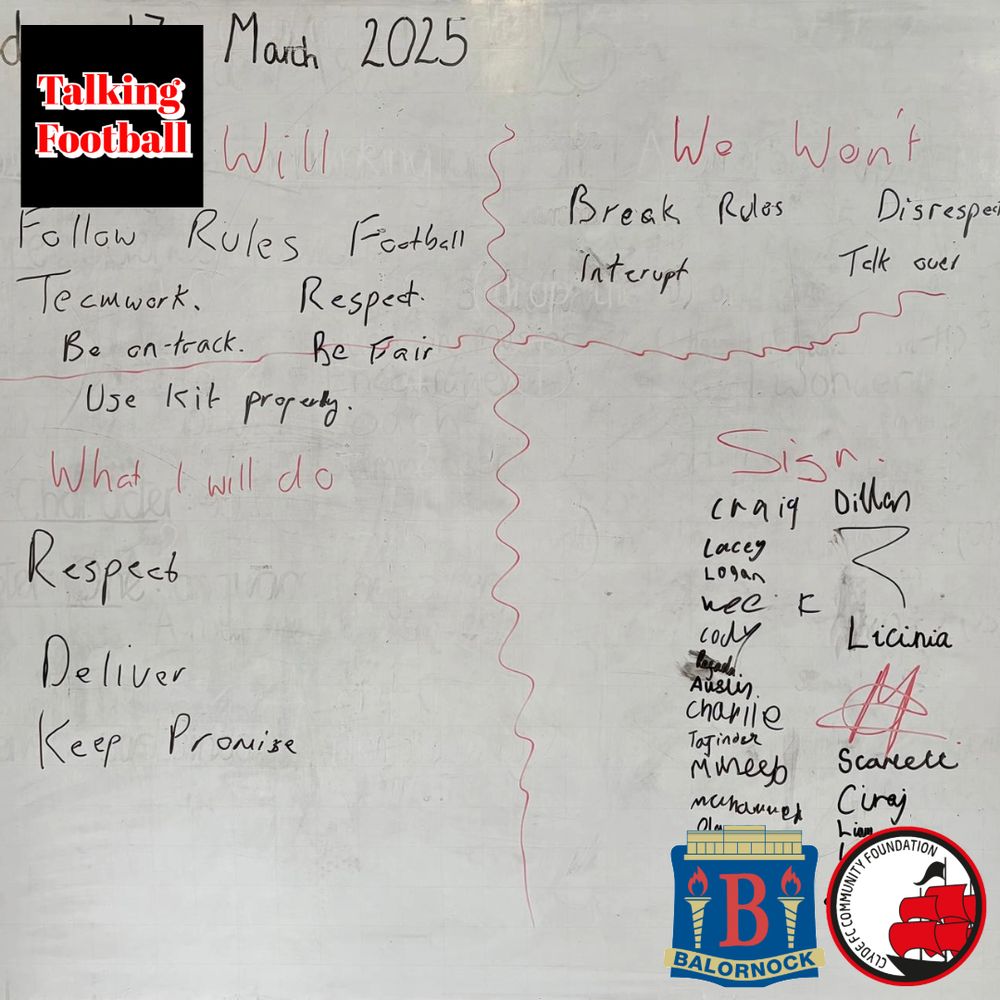 March 2025
Talking
Football
Will
Follow Rules Football
Teamwork. Respect.
Be on-track. Be Fair
Use Kit properly.
What I will do
Respect
Deliver
Keep Promise
We Won't
Break Rules Disrespect
Interupt Talk over
Sign.
Craig
Lacey
Logan
Cody
Austin.
Charlie
Tajinder
Muneeb
Dillan
Licinia
Scarlett
Ciraj
Liam
B
BALORNOCK
CLYDE FC COMMUNITY FOUNDATION